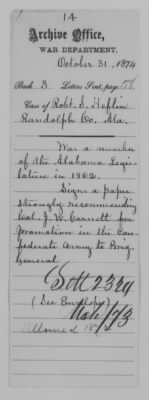 14
Archive Office,
WAR DEPARTMENT,
October 31, 1874
Book 3 Letters Sent, page 58
Case of Robt. S. Heflin
Randolph Co. Ala.
Was a member
of the Alabama Legis-
lature in 1862.
Signs a paper
strongly recommending
Col. J. W. Garrott for
promotion in the Con-
federate Army to Brig.
General
(See Envelope)
Allowed